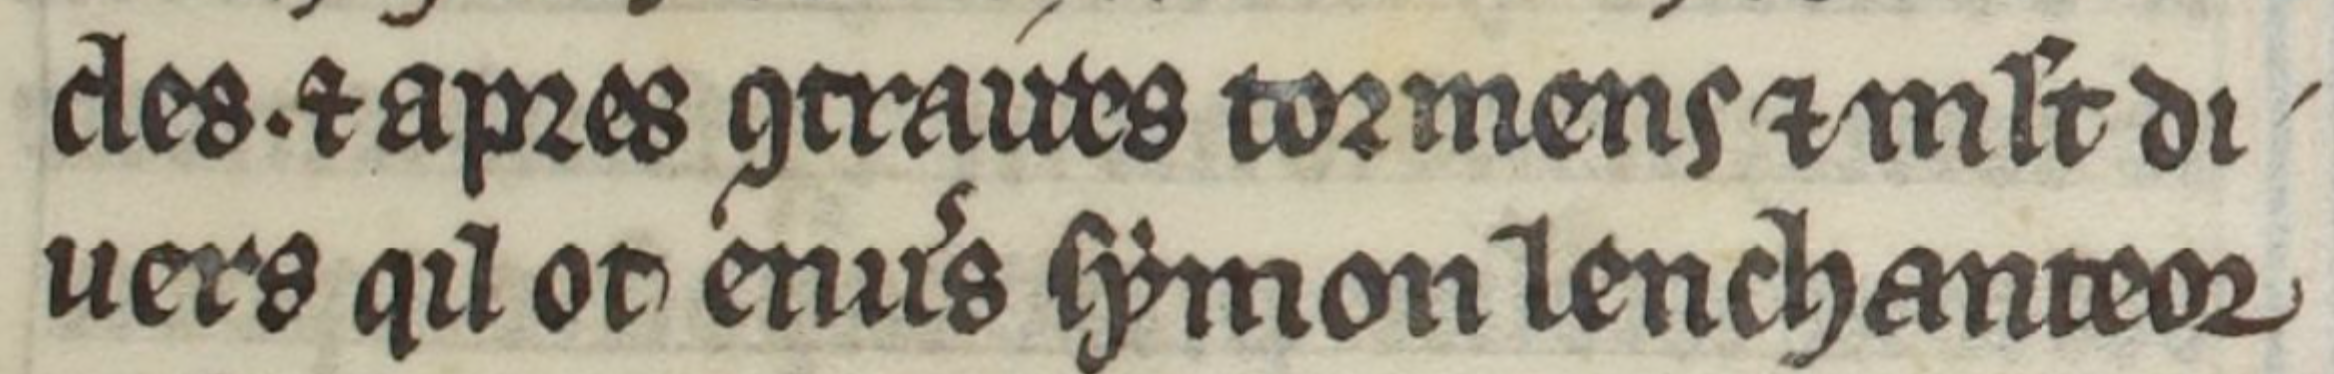 cles. ⁊ apres ꝯtraires tormens ⁊ mlt di
uers qil ot enus symon lenchanteor